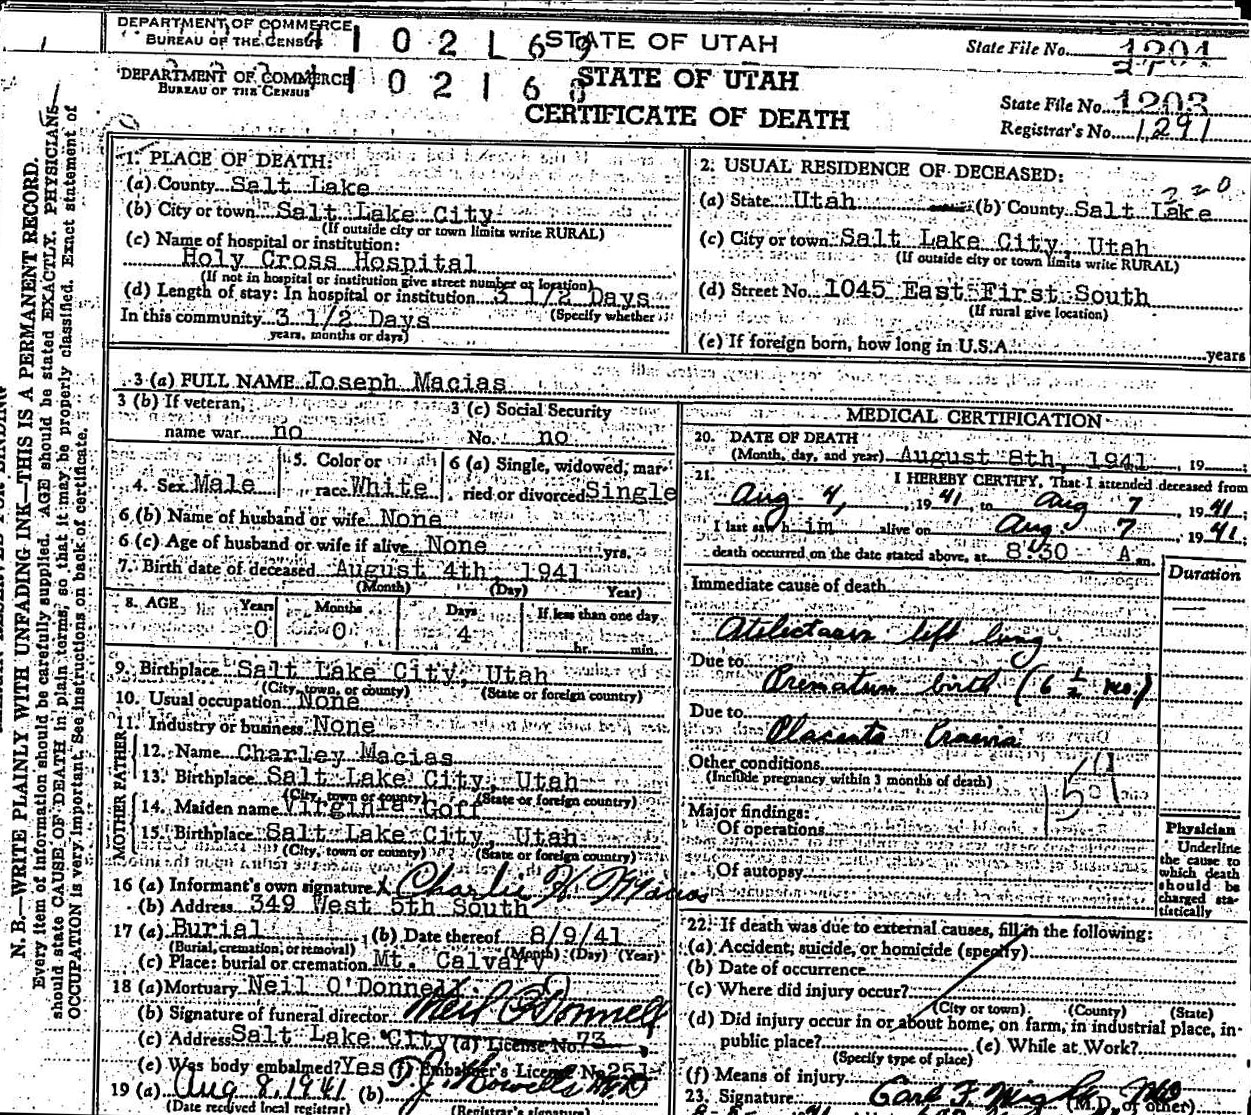 DEPARTMENT OF COMMERCE
BUREAU OF THE CENSUS
STATE OF UTAH
State File No. 1204
DEPARTMENT OF COMMERCE
BUREAU OF THE CENSUS
STATE OF UTAH
CERTIFICATE OF DEATH
State File No. 1203
Registrar's No. 1291
N. B.—WRITE PLAINLY WITH UNFADING INK—THIS IS A PERMANENT RECORD.
Every item of information should be carefully supplied. AGE should be stated EXACTLY. PHYSICIANS
should state CAUSE OF DEATH in plain terms, so that it may be properly classified. Exact statement of
OCCUPATION is very important. See instructions on back of certificate.
1. PLACE OF DEATH:
(a) County Salt Lake
(b) City or town Salt Lake City
(If outside city or town limits write RURAL)
(c) Name of hospital or institution:
Holy Cross Hospital
(If not in hospital or institution give street number or location)
(d) Length of stay: In hospital or institution 3 1/2 Days
(Specify whether
In this community 3 1/2 Days
years, months or days)
2. USUAL RESIDENCE OF DECEASED:
220
(a) State Utah (b) County Salt Lake
(c) City or town Salt Lake City, Utah
(If outside city or town limits write RURAL)
(d) Street No. 1045 East First South
(If rural give location)
(e) If foreign born, how long in U.S.A. years
3 (a) FULL NAME Joseph Macias
3 (b) If veteran,
name war no
3 (c) Social Security
No. no
4. Sex Male
5. Color or
race White
6 (a) Single, widowed, mar-
ried or divorced Single
6 (b) Name of husband or wife None
6 (c) Age of husband or wife if alive None yrs.
7. Birth date of deceased August 4th, 1941
(Month) (Day) Year)
8. AGE Years Months Days If less than one day
0 0 4 hr. min.
9. Birthplace Salt Lake City, Utah
(City, town, or county) (State or foreign country)
10. Usual occupation None
11. Industry or business None
FATHER
12. Name Charley Macias
13. Birthplace Salt Lake City, Utah
(City, town or county) (State or foreign country)
MOTHER
14. Maiden name Virginia Goff
15. Birthplace Salt Lake City, Utah
(City, town or county) (State or foreign country)
16 (a) Informant's own signature X Charlie H. Macias
(b) Address 349 West 5th South
17 (a) Burial (b) Date thereof 8/9/41
(Burial, cremation, or removal) (Month) (Day) (Year)
(c) Place: burial or cremation Mt. Calvary
18 (a) Mortuary Neil O'Donnell
(b) Signature of funeral director Neil O'Donnell
(c) Address Salt Lake City (d) License No. 73
(e) Was body embalmed? Yes (f) Embalmer's License No. 251
19 (a) Aug 8, 1941 (b)
(Date received local registrar) (Registrar's signature)
MEDICAL CERTIFICATION
20. DATE OF DEATH
(Month, day, and year) August 8th, 1941, 19
21. I HEREBY CERTIFY, That I attended deceased from
Aug 4, 1941, to Aug 7, 1941;
I last saw him alive on Aug 7, 1941;
death occurred on the date stated above, at 8:30 A m.
Duration
Immediate cause of death
Atelectasis left lung
Due to
Premature birth (6 1/2 mo.)
Due to
Placenta Praevia
Other conditions
(Include pregnancy within 3 months of death)
Major findings:
Of operations
Of autopsy
Physician
Underline
the cause to
which death
should be
charged sta-
tistically
22. If death was due to external causes, fill in the following:
(a) Accident, suicide, or homicide (specify)
(b) Date of occurrence
(c) Where did injury occur?
(City or town) (County) (State)
(d) Did injury occur in or about home, on farm, in industrial place, in-
public place? (e) While at Work?
(Specify type of place)
(f) Means of injury
23. Signature